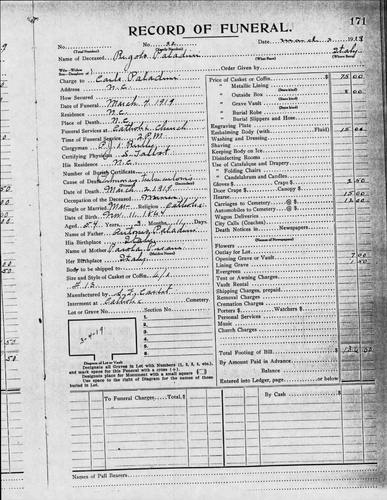 171
RECORD OF FUNERAL.
No. No. 22 Date March 3 1919
(Total Number) (Yearly Number)
Name of Deceased Paladini Italy
(What Race) (Where Born)
Charge to Carlo Paladini Order Given by
Address N.C.
How Secured
Date of Funeral March 4 1919
Residence N.C.
Place of Death N.C.
Funeral Services at Catholic Church
Time of Funeral Service 2 P.M.
Clergyman P.J.
Certifying Physician S. Talbot
His Residence N.C.
Number of Burial Certificate
Cause of Death Pulmonary Tuberculosis
Date of Death March 2 1919
Occupation of the Deceased Miner
Single or Married Mar Religion Catholic
Date of Birth Nov. 11, 1864
Aged 54 Years 3 Months 11 Days
Name of Father Paladini
His Birthplace Italy
Name of Mother
(Maiden Name)
Her Birthplace Italy
Body to be shipped to
Size and Style of Casket or Coffin 6/1
# 13
Manufactured by
Interment at Catholic Cemetery.
Lot or Grave No. Section No.
3-4-19
1
2
3
4
5
6
Diagram of Lot or Vault
Designate all Graves in Lot with Numbers (1, 2, 3, 4, etc.),
and mark space for this Funeral with a cross (+).
Designate place for Monument with a small square
Use space to the right of Diagram for the names of those
buried in Lot.
Price of Casket or Coffin $ 75 00
" Metallic Lining
" Outside Box 5 00
" Grave Vault
" Burial Robe
" Burial Slippers and Hose
Engraving Plate
Embalming Body (with Fluid) 15 00
Washing and Dressing
Shaving
Keeping Body on Ice
Disinfecting Rooms
Use of Catafalque and Drapery
" Folding Chairs
" Candelabrum and Candles
Gloves $ Crape $ 2 50
Door Crape $ Canopy $
Hearse 15 00
Carriages to Cemetery @ $ 12 00
Automobiles to Cemetery @ $
Wagon Deliveries
City Calls (Coaches)
Death Notices in Newspapers
(Names of Newspapers)
Flowers
Outlay for Lot
Opening Grave or Vault 7 00
Lining Grave 1 50
Evergreen
Tent or Awning Charges
Vault Rental
Shipping Charges, prepaid
Removal Charges
Cremation Charges
Porters $ Watchers $
Personal Services
Music
Church Charges
Total Footing of Bill $
By Amount Paid in Advance
Balance
Entered into Ledger, page or below
To Funeral Charges Total, $
By Cash
Names of Pall Bearers